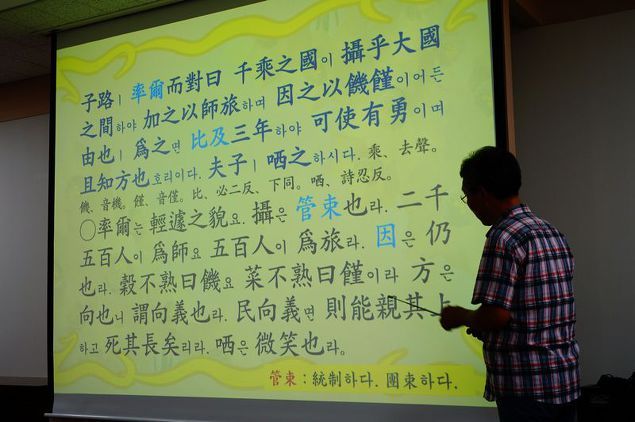 子路ㅣ 率爾而對曰 千乘之國이 攝乎大國
之間하야 加之以師旅하며 因之以饑饉이어든
由也ㅣ 爲之면 比及三年하야 可使有勇이며
且知方也호리이다. 夫子ㅣ 哂之하시다. 乘、去聲。
饑、音機。饉、音僅。比、必二反、下同。哂、詩忍反。
○率爾는 輕遽之貌요. 攝은 管束也라. 二千
五百人이 爲師요 五百人이 爲旅라. 因은 仍
也라. 穀不熟曰饑요 菜不熟曰饉이라 方은
向也니 謂向義也라. 民向義면 則能親其上
하고 死其長矣리라. 哂은 微笑也라。
管束：統制하다. 團束하다.